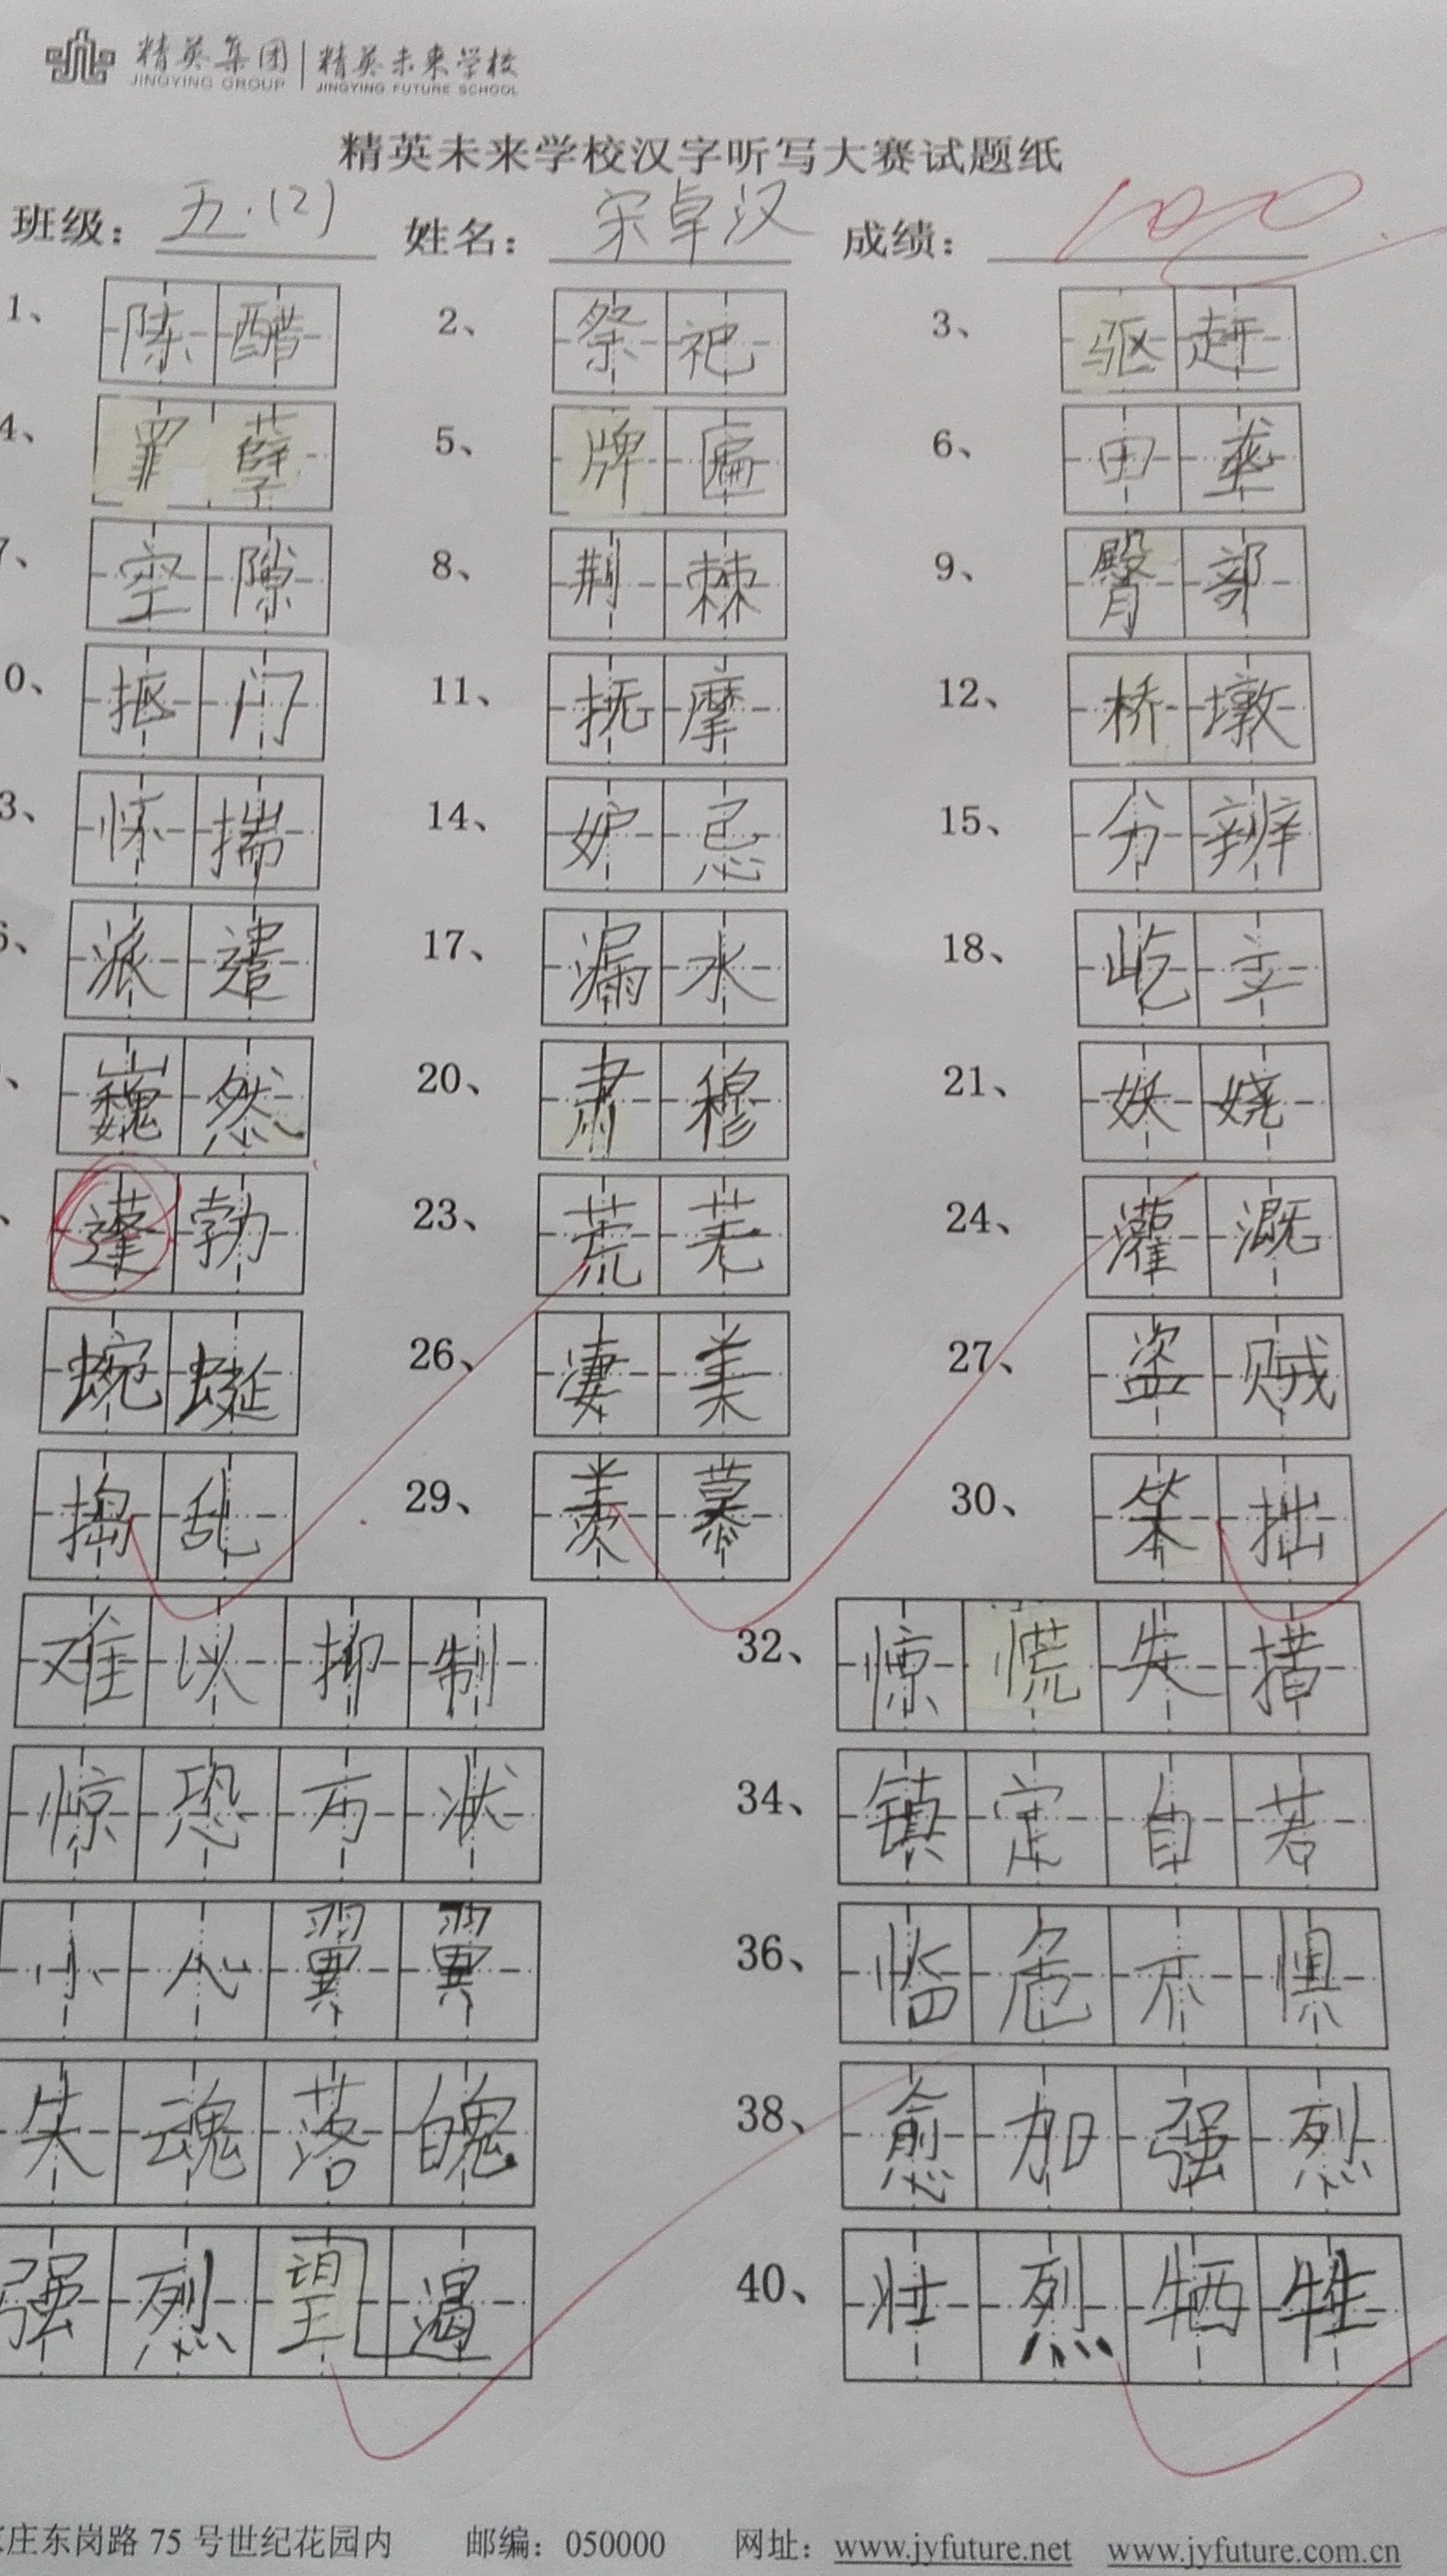 精英集团 精英未来学校
JINGYING GROUP JINGYING FUTURE SCHOOL
精英未来学校汉字听写大赛试题纸
班级： 五.(2) 姓名： 宋卓汉 成绩： 100
1、 陈醋 2、 祭祀 3、 驱赶
4、 罪孽 5、 牌匾 6、 田垄
7、 空隙 8、 荆棘 9、 臀部
0、 抠门 11、 抚摩 12、 桥墩
3、 怀揣 14、 妒忌 15、 分辨
6、 派遣 17、 漏水 18、 屹立
、 巍然 20、 肃穆 21、 妖娆
、 蓬勃 23、 荒芜 24、 灌溉
蜿蜒 26、 凄美 27、 盗贼
捣乱 29、 羡慕 30、 笨拙
难以抑制 32、 惊慌失措
惊恐万状 34、 镇定自若
小心翼翼 36、 临危不惧
失魂落魄 38、 愈加强烈
强烈 40、 壮烈牺牲
庄东岗路 75 号世纪花园内 邮编：050000 网址：www.jyfuture.net www.jyfuture.com.cn